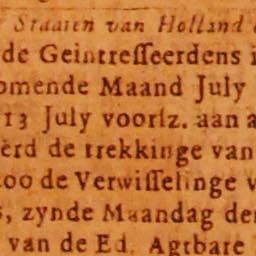 Staaten van Holland
de Geintresseerdens
omende Maand July
13 July voorlz. aan
erd de trekkinge van
oo de Verwisselinge
zynde Maandag de
van de Ed. Agtbare